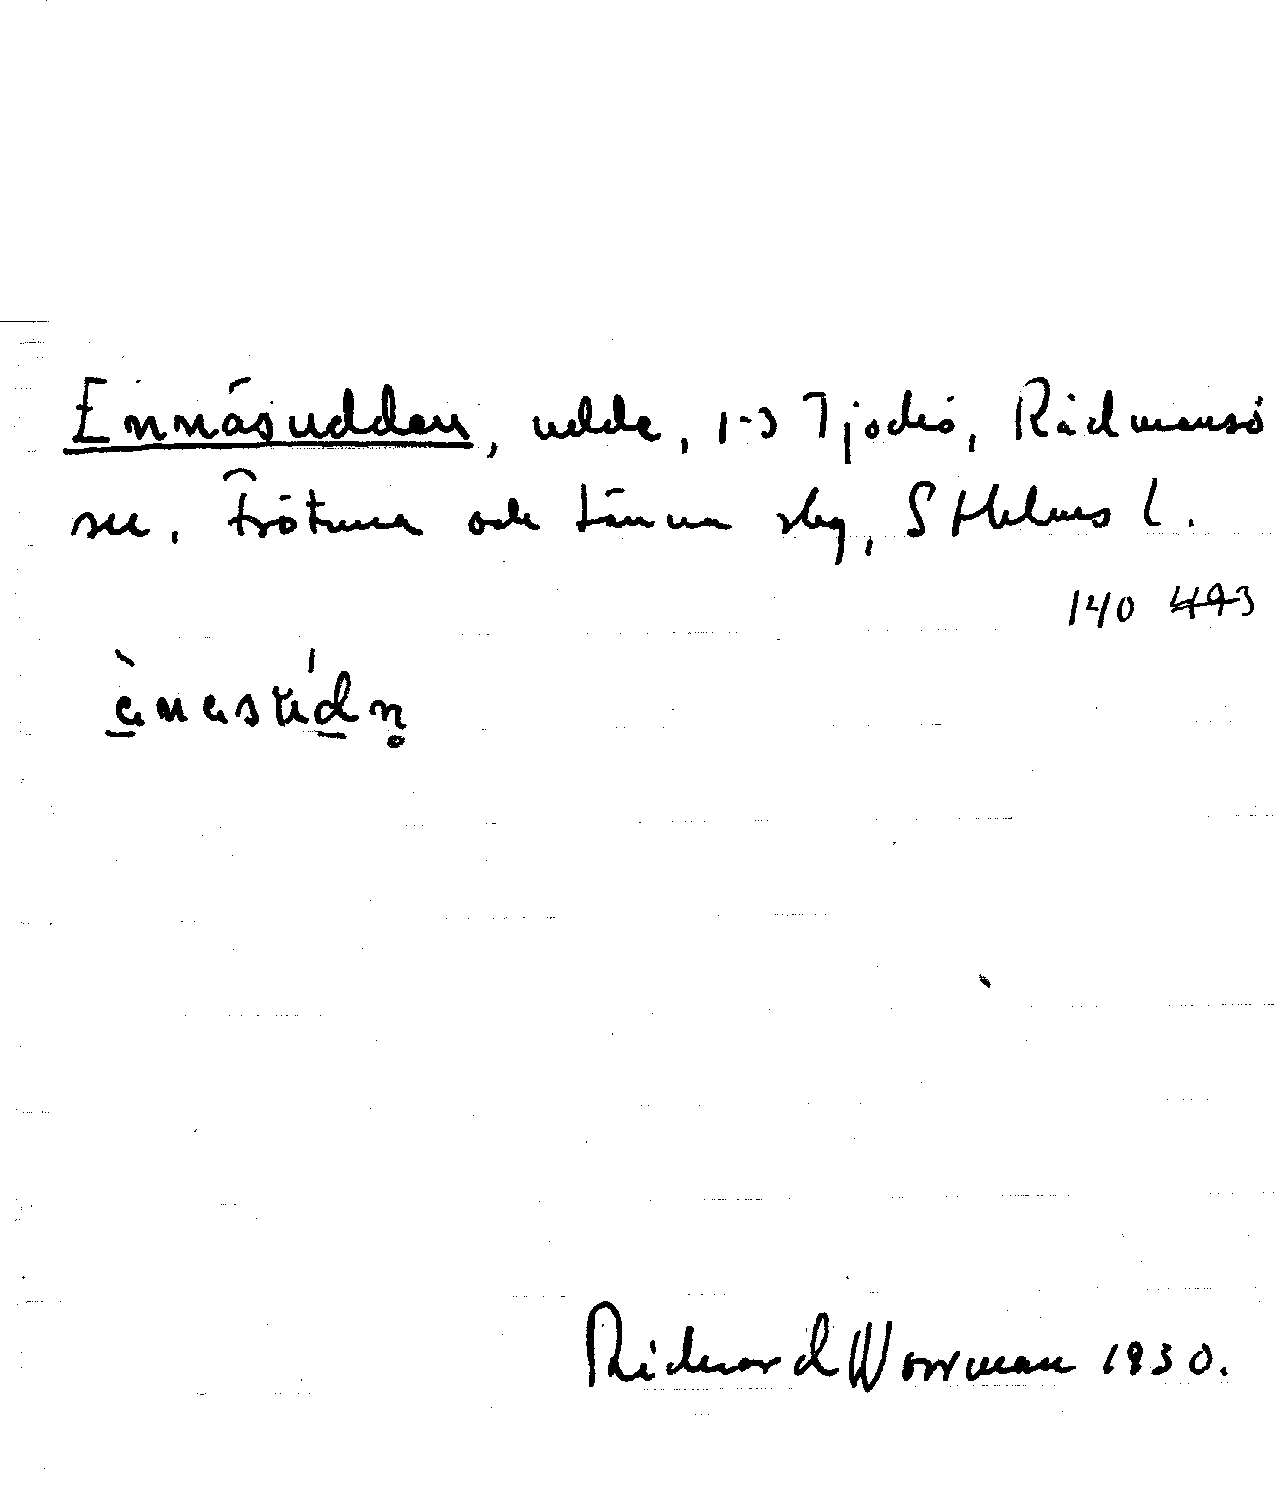 Ennäsudden, udde, 1-3 Tjockö, Rådmansö
sn. Frötuna och Länna skg, Sthlms l.
140 493
Richard Worrman 1930.